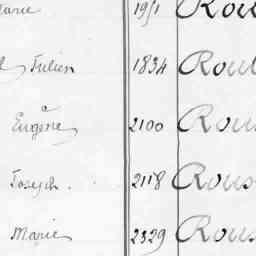 Marie 1951 Rou
Julien 1834 Roul
Eugène 2100 Rous
Joseph. 2118 Rous
Marie 2329 Rous